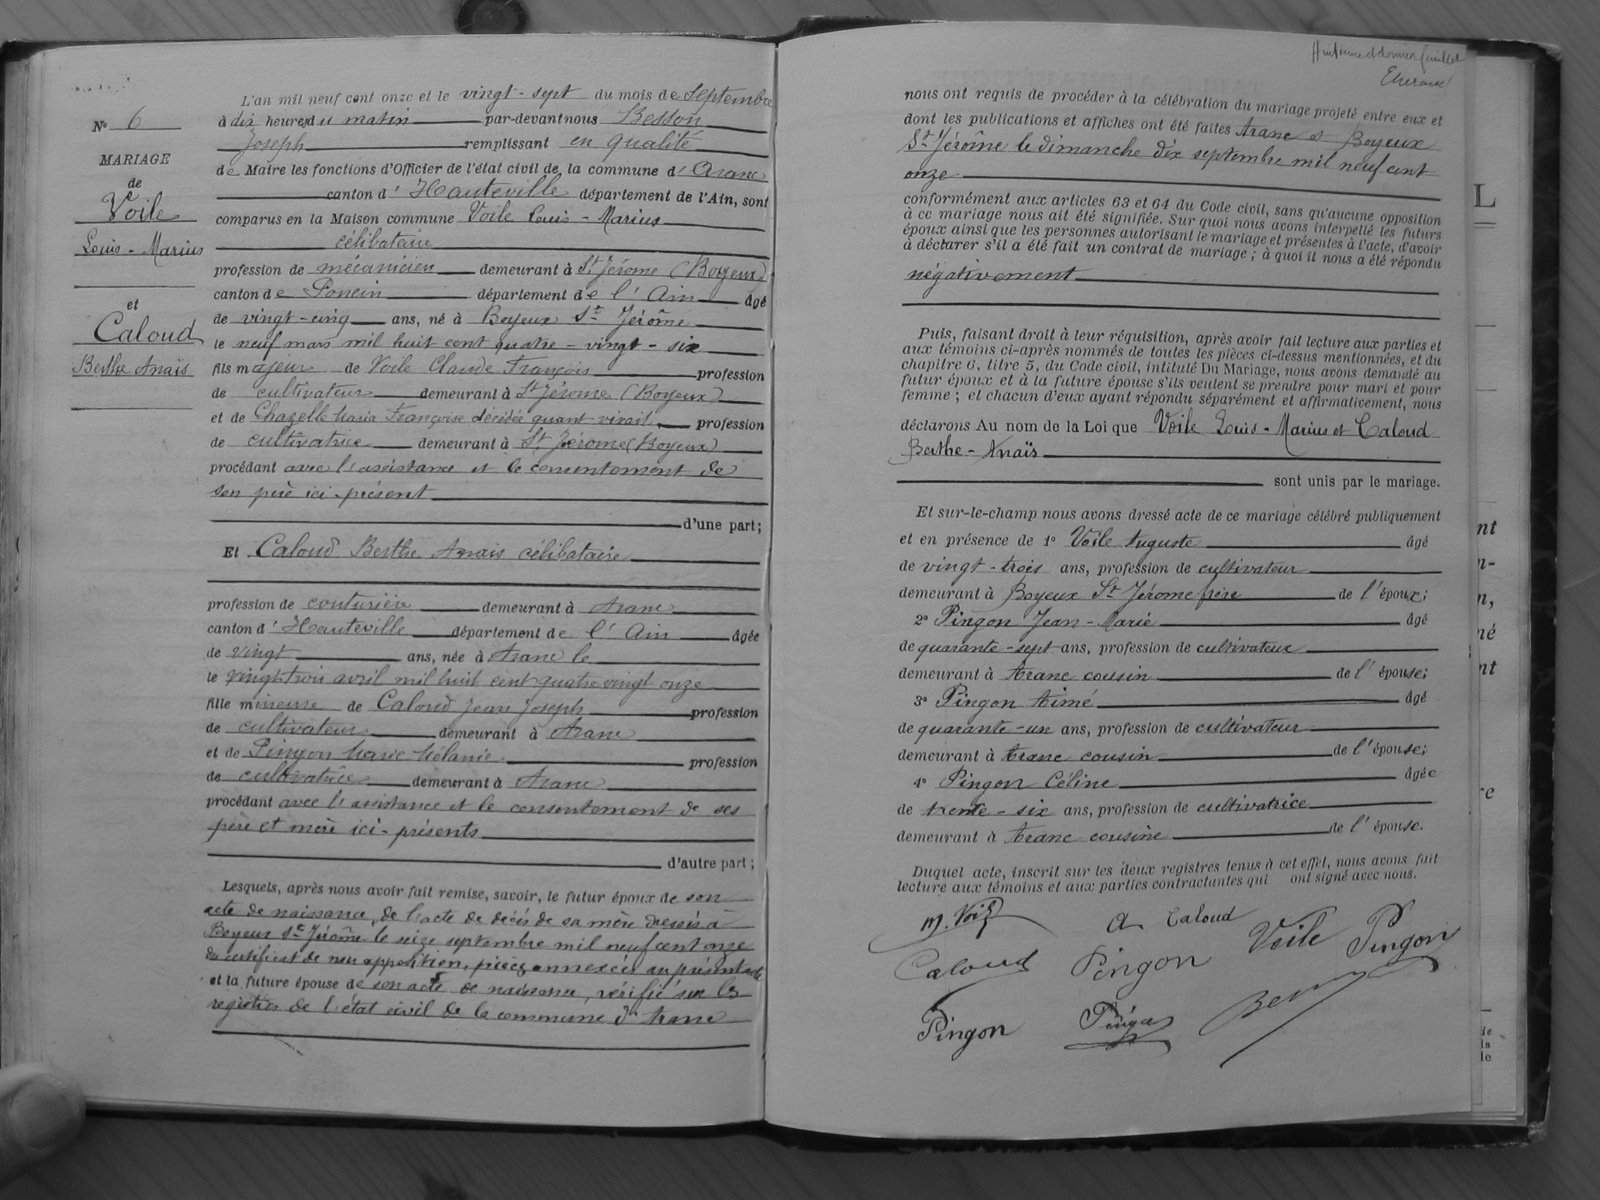 N° 6
MARIAGE
de
Voile
Louis-Marius
et
Caloud
Berthe Anaïs
L'an mil neuf cent onze et le vingt-sept du mois de Septembre
à dix heures du matin par-devant nous Besson
Joseph remplissant en qualité
de Maire les fonctions d'Officier de l'état civil de la commune d'Aranc
canton d'Hauteville département de l'Ain, sont
comparus en la Maison commune Voile Louis-Marius
célibataire
profession de mécanicien demeurant à St Jérome (Boyeux)
canton de Poncin département de l'Ain âgé
de vingt-cinq ans, né à Boyeux St Jérôme
le neuf mars mil huit cent quatre-vingt-six
fils majeur de Voile Claude François profession
de cultivateur demeurant à St Jérome (Boyeux)
et de Chazelle Maria Françoise décédée quant vivait, profession
de cultivatrice demeurant à St Jérome (Boyeux)
procédant avec l'assistance et le consentement de
son père ici-présent
d'une part;
Et Caloud Berthe Anaïs célibataire
profession de couturière demeurant à Aranc
canton d'Hauteville département de l'Ain âgée
de vingt ans, née à Aranc le
le vingt trois avril mil huit cent quatre vingt onze
fille mineure de Caloud Jean Joseph profession
de cultivateur demeurant à Aranc
et de Pingon Marie Mélanie profession
de cultivatrice demeurant à Aranc
procédant avec l'assistance et le consentement de ses
père et mère ici-présents
d'autre part;
Lesquels, après nous avoir fait remise, savoir, le futur époux de son
acte de naissance, de l'acte de décès de sa mère dressés à
Boyeux St Jérôme le seize septembre mil neuf cent onze
du certificat de non opposition, pièces annexées au présent acte
et la future épouse de son acte de naissance, vérifié sur les
registres de l'état civil de la commune d'Aranc
nous ont requis de procéder à la célébration du mariage projeté entre eux et
dont les publications et affiches ont été faites Aranc et Boyeux
St Jérôme le dimanche dix septembre mil neuf cent
onze
conformément aux articles 63 et 64 du Code civil, sans qu'aucune opposition
à ce mariage nous ait été signifiée. Sur quoi nous avons interpellé les futurs
époux ainsi que les personnes autorisant le mariage et présentes à l'acte, d'avoir
à déclarer s'il a été fait un contrat de mariage; à quoi il nous a été répondu
négativement
Puis, faisant droit à leur réquisition, après avoir fait lecture aux parties et
aux témoins ci-après nommés de toutes les pièces ci-dessus mentionnées, et du
chapitre 6, titre 5, du Code civil, intitulé Du Mariage, nous avons demandé au
futur époux et à la future épouse s'ils veulent se prendre pour mari et pour
femme; et chacun d'eux ayant répondu séparément et affirmativement, nous
déclarons Au nom de la Loi que Voile Louis-Marius et Caloud
Berthe-Anaïs
sont unis par le mariage.
Et sur-le-champ nous avons dressé acte de ce mariage célébré publiquement
et en présence de 1° Voile Auguste âgé
de vingt-trois ans, profession de cultivateur
demeurant à Boyeux St Jérome frère de l'époux;
2° Pingon Jean-Marie âgé
de quarante-sept ans, profession de cultivateur
demeurant à Aranc cousin de l'épouse;
3° Pingon Aimé âgé
de quarante-un ans, profession de cultivateur
demeurant à Aranc cousin de l'épouse;
4° Pingon Céline âgée
de trente-six ans, profession de cultivatrice
demeurant à Aranc cousine de l'épouse.
Duquel acte, inscrit sur les deux registres tenus à cet effet, nous avons fait
lecture aux témoins et aux parties contractantes qui ont signé avec nous.
M. Voile A Caloud Voile Pingon
Caloud Pingon
Pingon Pingon Besson
L
nt
n-
n,
né
nt
re
de
la
le